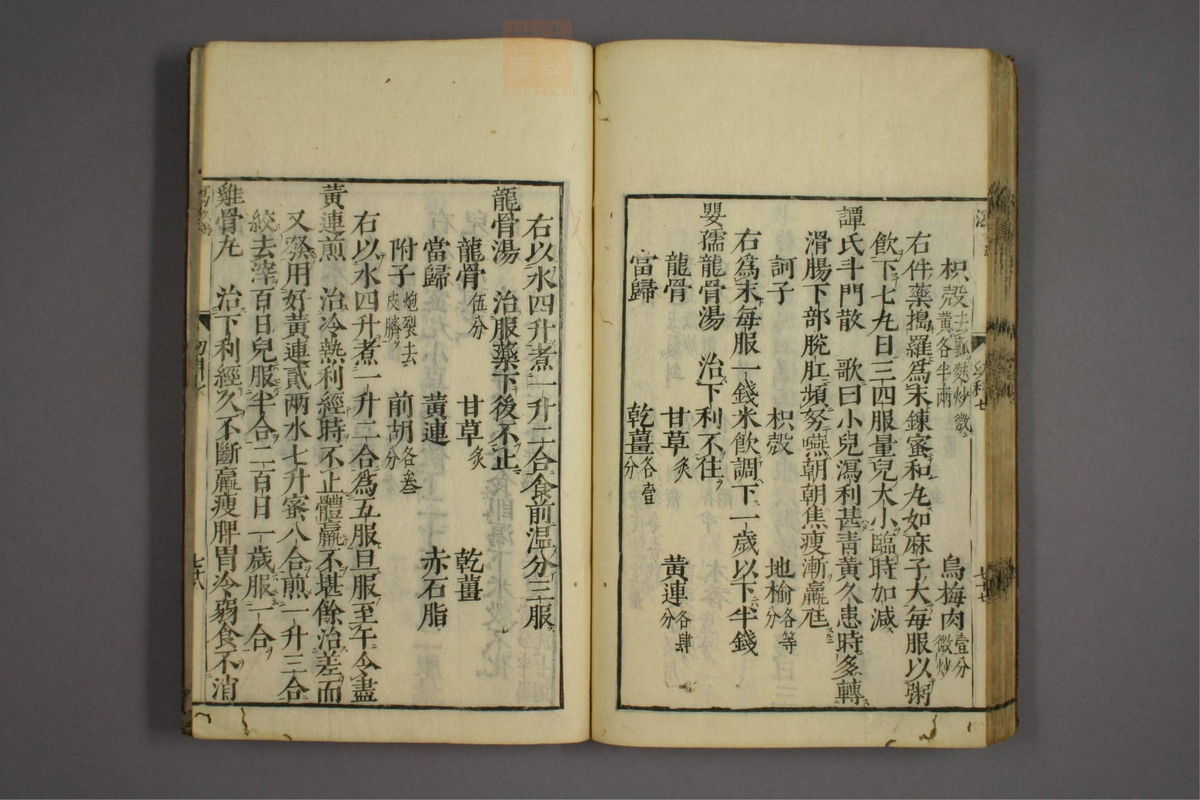 枳殼去瓤麩炒微黃各半兩　烏梅肉壹分微炒
右件藥搗羅爲末鍊蜜和丸如麻子大每服以粥
飲下七九日三四服量兒大小臨時加減
譚氏斗門散　歌曰小兒瀉利甚青黃久患時多轉
滑腸下部脫肛頻努嚥朝朝焦瘦漸羸尫
訶子　枳殼　地榆各等分
右爲末每服一錢米飲調下一歲以下半錢
嬰孺龍骨湯　治下利不住
龍骨　甘草炙　黃連各肆分
當歸　乾薑各壹分
七七
右以水四升煮一升二合食前温分三服
龍骨湯　治服藥下後不止
龍骨伍分　甘草炙　乾薑
當歸　黃連　赤石脂
附子炮裂去皮臍　前胡各叁分
右以水四升煮一升二合爲五服旦服至午令盡
黃連煎　治冷熱利經時不止體羸不堪餘治差而
又發用好黃連貳兩水七升蜜八合煎一升三合
絞去滓百日兒服半合二百日一歲服一合
雞骨丸　治下利經久不斷羸瘦脾胃冷弱食不消
七八